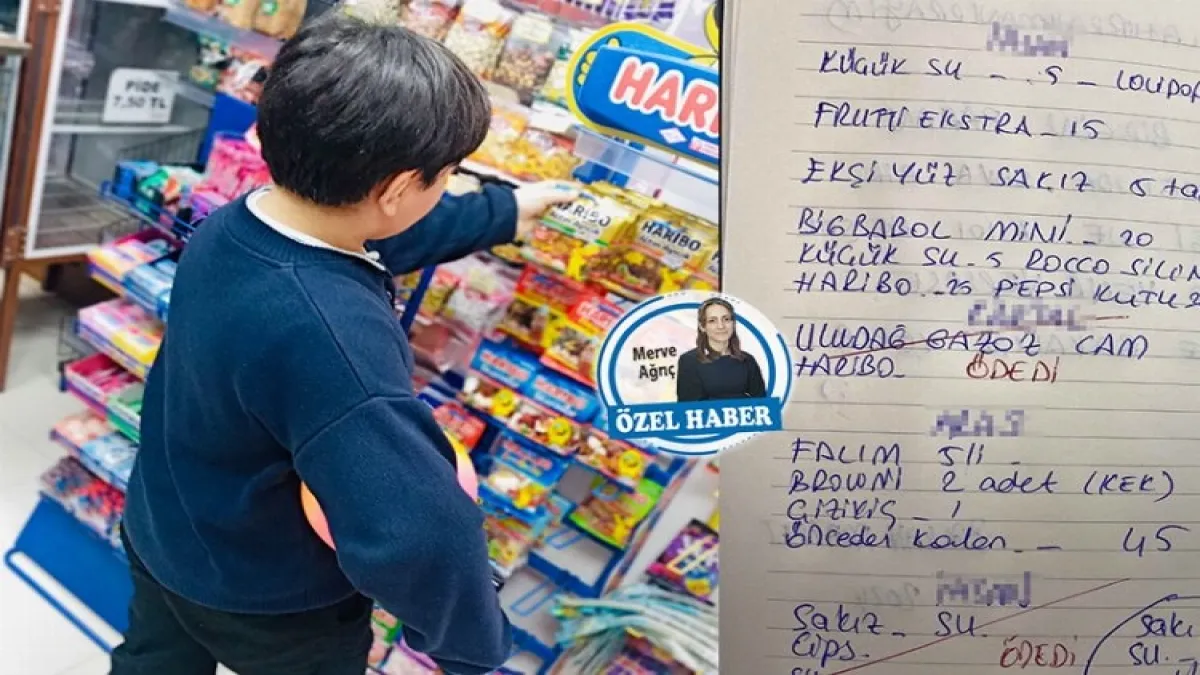 PİDE
7,50 TL
HARI
HARIBO
HARIBO
Merve
Ağrıç
ÖZEL HABER
KÜÇÜK SU - .5 - LOLİPOP
FRUTTİ EKSTRA - 15
EKŞİ YÜZ SAKIZ 5 ta
BİGBABOL MİNİ - 20
KÜÇÜK SU - 5 ROCCO
HARİBO - 25 PEPSİ KUTU
ULUDAĞ GAZOZ CAM
HARİBO - ÖDEDİ
FALIM 5Lİ -
BROWNİ 2 adet (KEK)
ÇİZİKİÇ - 1
önceden kalan - - 45
Sakız - SU.
Cips. ÖDEDİ
Sakı
SU. -